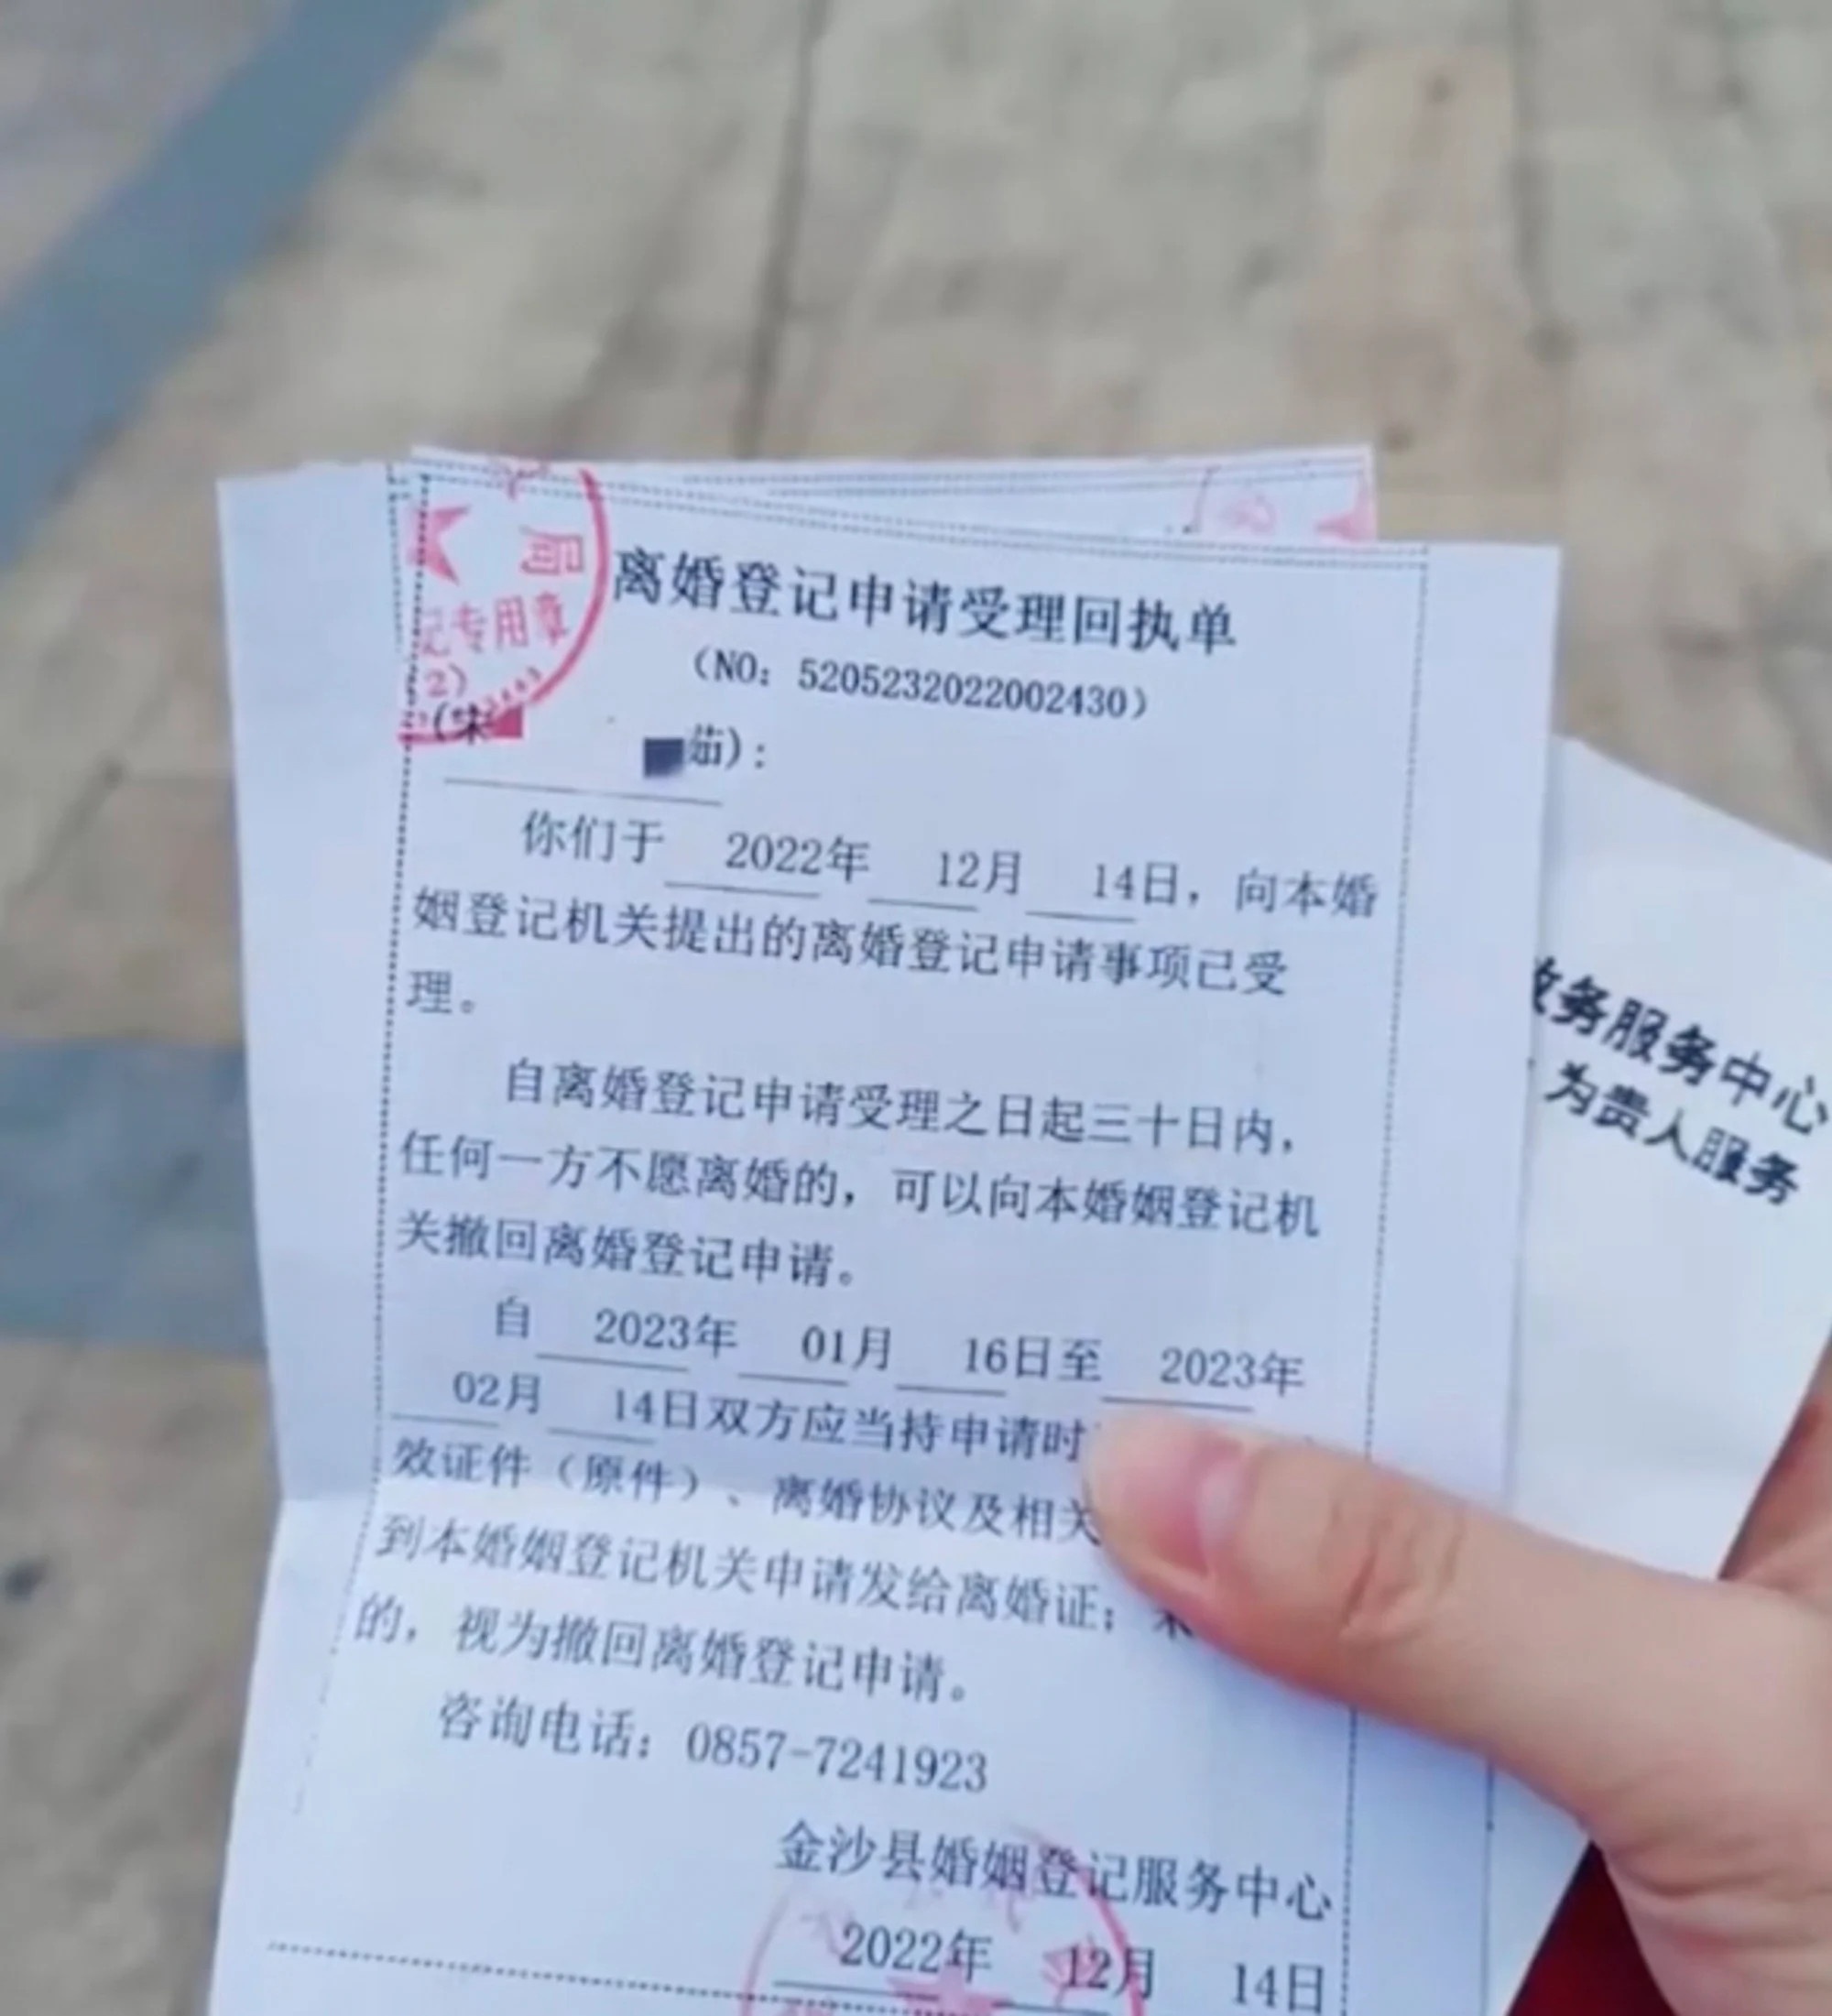 局
记专用章
(2)
离婚登记申请受理回执单
（NO：5205232022002430）
(宋
茹)：
你们于 2022年 12月 14日，向本婚
姻登记机关提出的离婚登记申请事项已受
理。
自离婚登记申请受理之日起三十日内，
任何一方不愿离婚的，可以向本婚姻登记机
关撤回离婚登记申请。
自 2023年 01月 16日至 2023年
02月 14日双方应当持申请时
效证件（原件）、离婚协议及相关
到本婚姻登记机关申请发给离婚证；
的，视为撤回离婚登记申请。
咨询电话：0857-7241923
金沙县婚姻登记服务中心
2022年 12月 14日
政务服务中心
为贵人服务